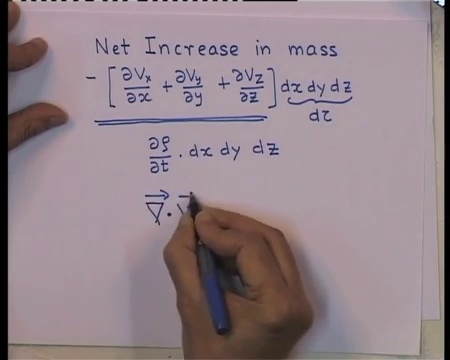 Net Increase in mass
- [ ∂Vx/∂x + ∂Vy/∂y + ∂Vz/∂z ] dx dy dz
dτ
∂ρ/∂t . dx dy dz
∇⃗ . V⃗